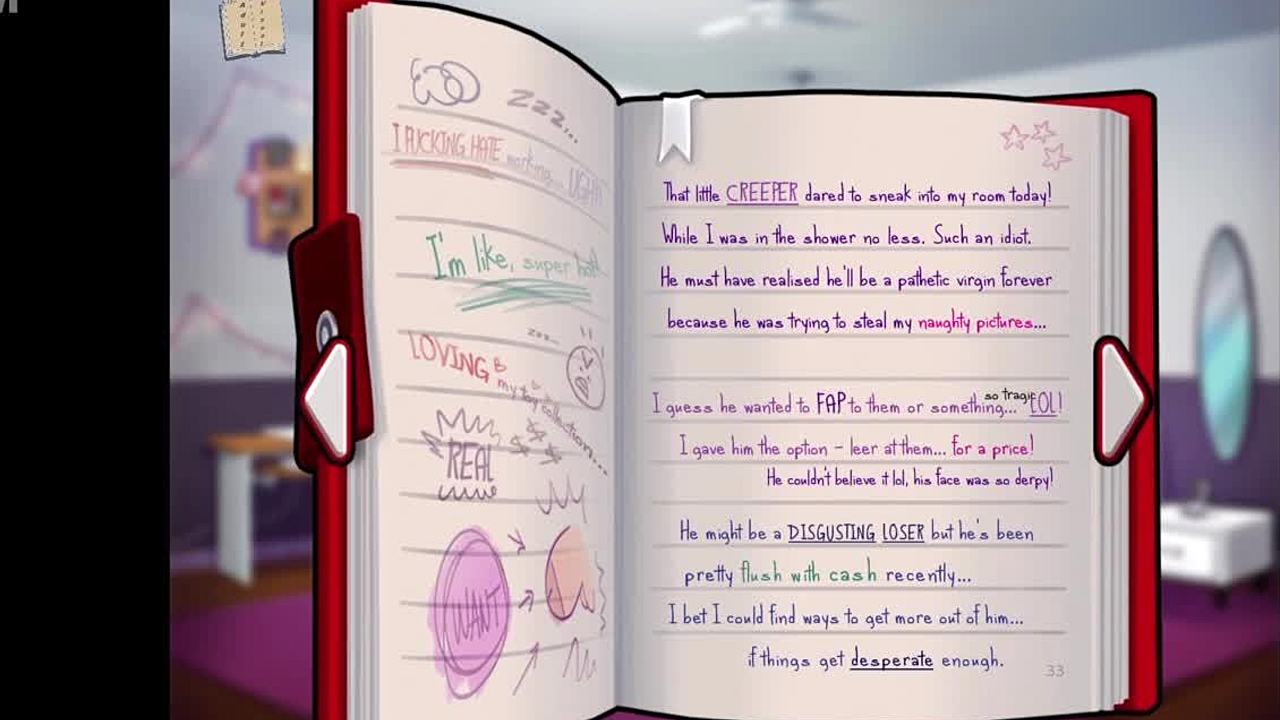 zzz...
I FUCKING HATE working... UGH!
I'm like, super hot!
zzz...
LOVING my toy collection...
REAL
WANT
That little CREEPER dared to sneak into my room today!
While I was in the shower no less. Such an idiot.
He must have realised he'll be a pathetic virgin forever
because he was trying to steal my naughty pictures...
so tragic
I guess he wanted to FAP to them or something... LOL!
I gave him the option - leer at them... for a price!
He couldn't believe it lol, his face was so derpy!
He might be a DISGUSTING LOSER but he's been
pretty flush with cash recently...
I bet I could find ways to get more out of him...
if things get desperate enough.
33